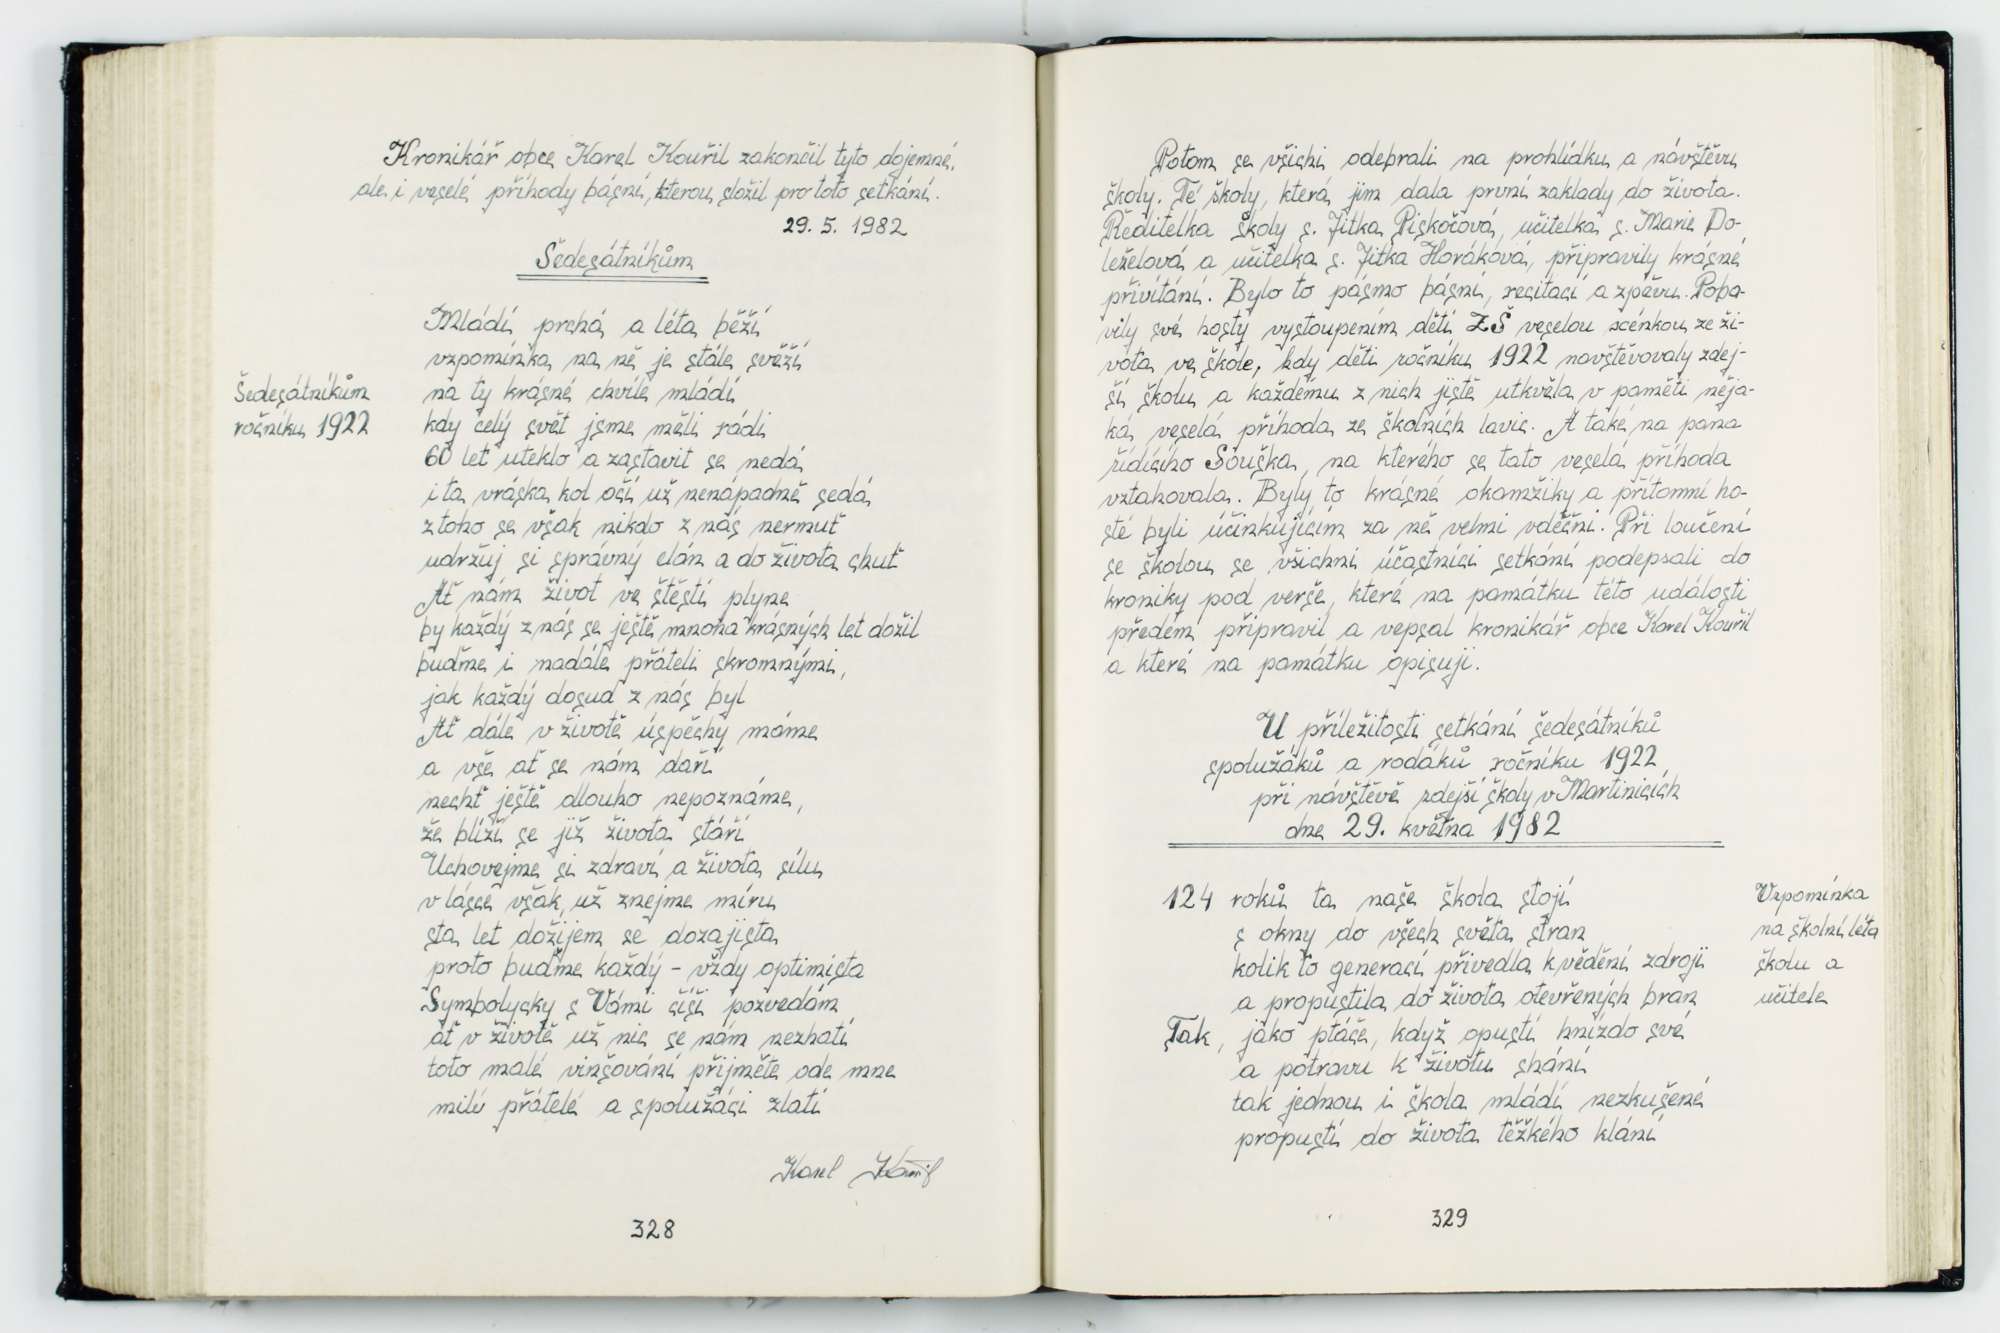 Kronikář obce Karel Kouřil zakončil tyto dojemné,
ale i veselé příhody básní, kterou složil pro toto setkání.
29. 5. 1982
Šedesátníkům
Mládí prchá a léta běží
vzpomínka na ně je stále svěží
na ty krásné chvíle mládí
kdy celý svět jsme měli rádi
60 let uteklo a zastavit se nedá
i ta vráska kol očí už nenápadně sedá
z toho se však nikdo z nás nermuť
udržuj si správný elán a do života chuť
Ať nám život ve štěstí plyne
by každý z nás se ještě mnoha krásných let dožil
buďme i nadále přáteli skromnými,
jak každý dosud z nás byl
Ať dále v životě úspěchy máme
a vše ať se nám daří
nechť ještě dlouho nepoznáme,
že blíží se již života stáří
Uchovejme si zdraví a života sílu
v lásce však už znejme míru
sta let dožijem se dozajista
proto buďme každý - vždy optimista
Symbolycky s Vámi číši pozvedám
ať v životě už nic se nám nezhatí
toto malé vinšování přijměte ode mne
milí přátelé a spolužáci zlatí
Karel Kouřil
Šedesátníkům
ročníku 1922
328
Potom se všichi odebrali na prohlídku a návštěvu
školy. Té školy, která jim dala první zaklady do života.
Ředitelka školy s. Jitka Piskočová, učitelka s. Marie Do-
leželová a učitelka s. Jitka Horáková, připravily krásné
přivítání. Bylo to pásmo básní, recitací a zpěvu. Poba-
vily své hosty vystoupením dětí ZŠ veselou scénkou ze ži-
vota ve škole, kdy děti ročníku 1922 navštěvovaly zdej-
ší školu a každému z nich jistě utkvěla v paměti něja-
ká veselá příhoda ze školních lavic. A také na pana
řídícího Souška, na kterého se tato veselá příhoda
vztahovala. Byly to krásné okamžiky a přítomní ho-
sté byli účinkujícím za ně velmi vděčni. Při loučení
se školou se všichni účastníci setkání podepsali do
kroniky pod verše, které na památku této události
předem připravil a vepsal kronikář obce Karel Kouřil
a které na památku opisuji.
U příležitosti setkání šedesátníků
spolužáků a rodáků ročníku 1922
při návštěvě zdejší školy v Martinicích
dne 29. května 1982
124 roků ta naše škola stojí
s okny do všech světa stran
kolik to generací přivedla k vědění zdroji
a propustila do života otevřených bran
Tak, jako ptáče, když opustí hnízdo své
a potravu k životu shání
tak jednou i škola mládí nezkušené
propustí do života těžkého klání
Vzpomínka
na školní léta
školu a
učitele
329